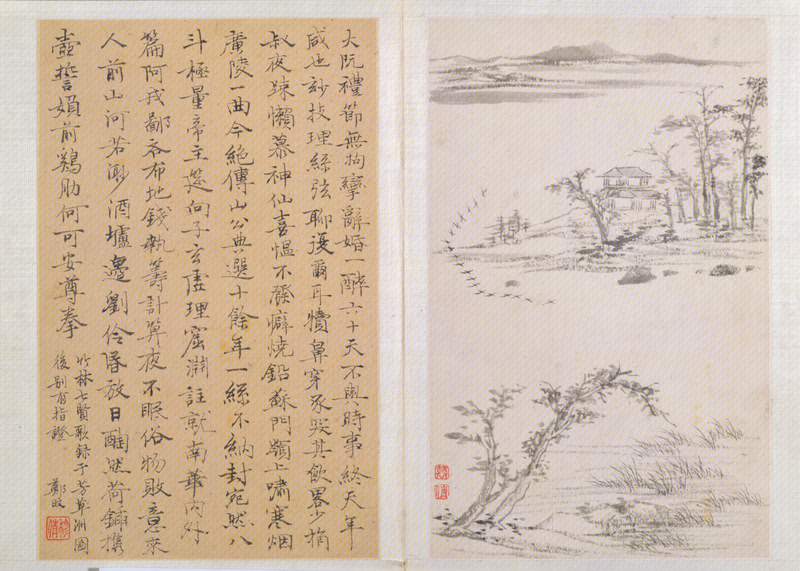 大阮禮節無拘攣辭婚一醉六十天不與時事終天年
咸也妙技理絲弦聊復爾耳犢鼻穿豕其飲畧少捐
叔夜踈懶慕神仙喜慍不發癖燒鉛蘇門嶺上嘯寒烟
廣陵一曲今絕傳山公典選十餘年一絲不納封宛然八
斗極量帝主向子玄虛理窟淵註就南華內外
篇阿戎鄙吝布地錢執籌計算夜不眠俗物敗意來
人前山河若渺酒壚邊劉伶昏放日酣然荷鍤攜
壺誓婦前鷄肋何可安尊拳
竹林七賢歌錄于芳草洲圖
後别有指證 鄭旼